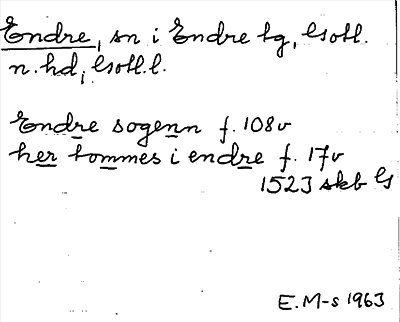 Endre, sn i Endre tg, Gsotl.
n. hd, Gsotl. l.
Endre sogenn f. 108v
her tommes i endre f. 17v
1523 skb Gs
E. M-s 1963